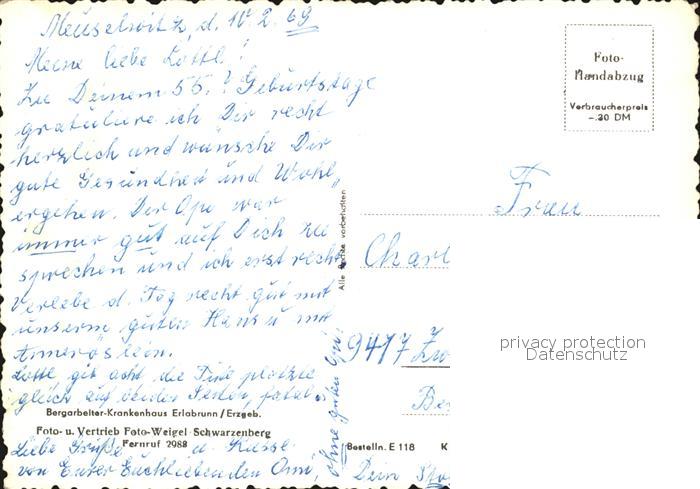 Meuselwitz, d. 10.2.69
Meine liebe Lottl!
Zu Deinem 55.? Geburtstage
gratuliere ich Dir recht
herzlich und wünsche Dir
gute Gesundheit und Wohl-
ergehen. Der Opa war
immer gut auf Dich zu
sprechen und ich erst recht
Verlebe d. Tag recht gut mit
unserm guten Hans u mit
Annerös'lein.
Lottl gib acht, die Tint platzte
gleich auf beiden
Bergarbeiter-Krankenhaus Erlabrunn/Erzgeb.
Foto- u. Vertrieb Foto-Weigel Schwarzenberg
Fernruf 2988
Liebe Grüße u. Küsse
von Eurer Euchliebenden Om,
ohne guten Opi!
Alle Rechte vorbehalten
Foto-
Handabzug
Verbraucherpreis
-.30 DM
Frau
Charl
9417 Zw
Be
Bestelln. E 118 K
Dein
privacy protection
Datenschutz